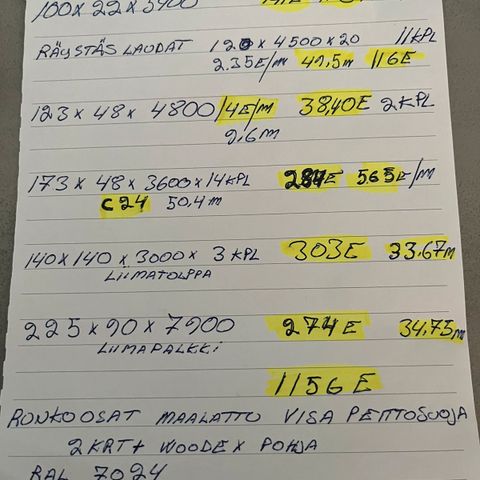 100 x 22 x 5400
RÄYSTÄS LAUDAT 120 x 4500 x 20 11 KPL
2.35E/m 49,5m 116E
123 x 48 x 4800 /4E/m 38,40E 2 KPL
9,6m
173 x 48 x 3600 x 14 KPL 284E 5.65E/m
C24 50,4m
140 x 140 x 3000 x 3 KPL 303E 33,67m
LIIMATOLPPA
225 x 90 x 7900 274E 34,75m
LIIMAPALKKI
1156E
RUNKOOSAT MAALATTU VISA PEITTOSUOJA
2KRT + WOODEX POHJA
RAL 7024